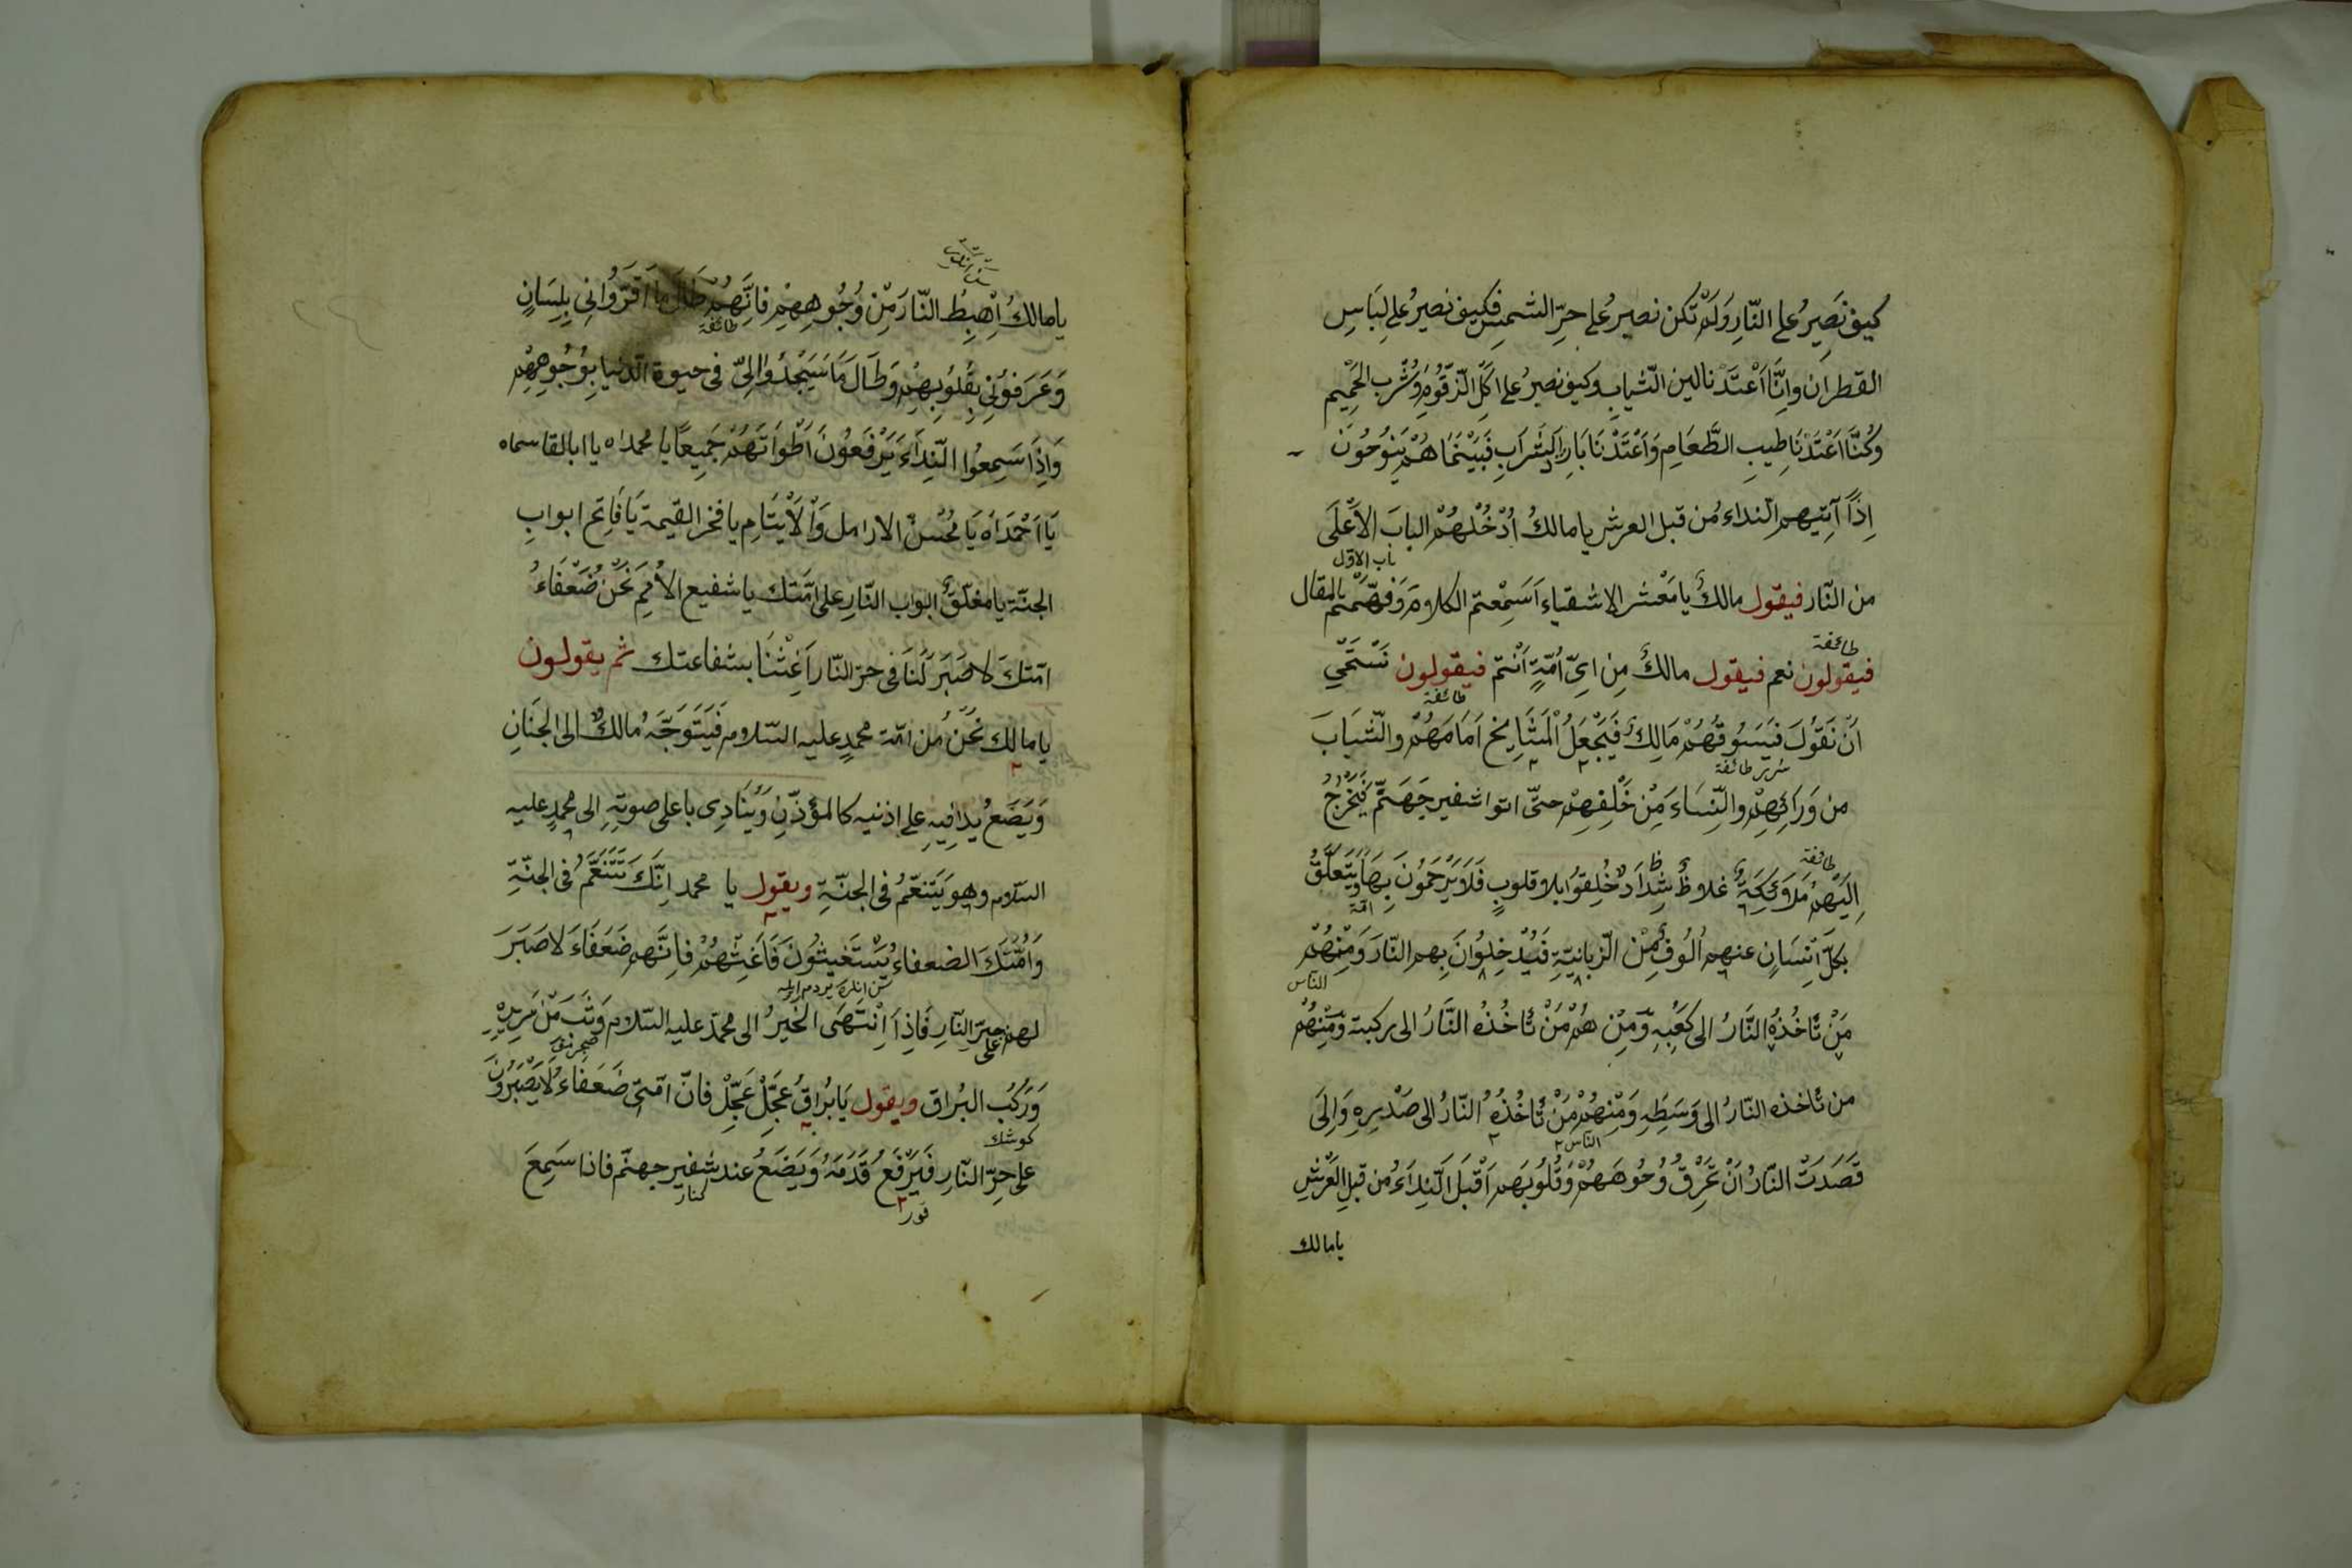 كيف نَصِيرُ على النّارِ وَلَمْ تكن نصيرُ على حرِّ الشمسِ فكيف نصيرُ على لِبَاسِ
القطران وانَّا اَعْتَدْنا لين الثّيابِ وكيف نصيرُ على اكلِ الزّقّومِ وَشُرْبِ الحَمِيْمِ
وَكُنَّا اَعْتَدْنَا طِيبِ الطَّعَامِ وَاَعْتَدْنَا بَارِدَ الشَّرَابِ فَبَيْنَمَا هُمْ يَنُوحُونَ
اِذًا آتِيهم النداءُ من قبل العرش يا مالكُ اُدْخُلْهُمْ البابَ الاَعْلَى
باب الاوّل
من النّار فيقول مالكُ يا مَعْشر الاشقياءِ اَسَمِعْتم الكلامَ وَفهّمْتم بالمقال
طائفة
فيقولون نعم فيقول مالكُ مِن اىِّ اُمّةٍ اَنتم فيقولون نَسْتَحْيِ
طائفة
اَنْ نَقُوْلَ فَيَسُوقُهُمْ مَالِكُ فَيَجْعَلُ الْمَشَايخ اَمَامَهُمْ والشّبَابَ
طائفة
من وَرَائِهِمْ والنِّسَاءَ مِنْ خَلْفِهِمْ حتّى اتوا شفير جَهَنَّمَ فَيَخْرُجُ
طائفة
اِلَيْهِمْ مَلَائِكَةٌ غلاظٌ شِدَادٌ خُلِقوُا بلا قلوبٍ فَلَا يَرْحَمُونَ بِهَا وَيَتَعَلَّقُ
بكلّ اِنْسَانٍ عنهم اُلُوفٌ مِنْ الزّبانيّةِ فَيُدْخِلُوانَ بِهم النّارَ وَمِنْهُمْ
الناس
مَنْ تَأخُذُهُ النَّارُ الى كَعْبِهِ وَمِنْ هُمْ مَنْ تَأخُذُه النَّارُ الى ركبته وَمِنْهُمْ
من تأخذه النّارُ الى وَسَطِهِ وَمِنْهُمْ مَنْ تَأخُذُهُ النّارُ الى صَدْرِهِ وَاِلَى
الناس
قَصَدَتْ النّارُ اَنْ تَحْرِقُ وُجُوهَهُمْ وَقُلُوبَهم اَقْبَلَ النِدَاءُ من قبل العَرْشِ
يا مالك
يا مالكُ اِهْبِطُ النّارَ مِنْ وُجُوهِهِمْ فاِنَّهُمْ طَالَ مَا اَقَرّوُانِى بِلِسَانٍ
طائفة
وَعَرَفوُنِى بِقُلوُبِهِمْ وَطَالَ مَا سَيَجْدُوُا اِلىّ فى حيوة الدنيا بِوُجُوهِهِمْ
وَاِذَا سَمِعُوا النِّدَاءَ يَرْفَعُونَ اَطْوَاتَهُمْ جَمِيعًا يا محمداه يا ابالقاسماه
يَا اَحْمَدَاهُ يَا مُحْسنُ الارامل وَالْاَيْتَامِ يا فخر القيمة يَا فَاتح ابوابِ
الجنّة يا مغلّقُ ابواب النّارِ على امّتك يا شفيع الاُمَمِ نَحْنُ ضُعَفَاءُ
امّتكَ لا صَبَرَ لَنَا فى حرّ النّار اَغِثْنَا بشفاعتك ثم يقولون
يا مالك نَحْنُ مُن امّة محمدٍ عليه السّلام فَيَتَوَجَّهُ مالكٌ الى الجنَانِ
وَيَضَعُ يدافيهِ على اذنيه كالمؤذّنِ وَيُنَادِى باعلى صوته الى محمدٍ عليه
السّلام وهو يَتَنعّمُ فى الجنّةِ ويقول يا محمد اِنَّكَ تَتَنَعَّمُ فى الجنّةِ
وَاُمّتَكَ الضعفاءُ يَسْتَغيثوُنَ فَاَغِثْهُمْ فاِنّهم ضَعَفَاءَ لا صَبَرَ
لهم على حرّ النّارِ فَاِذا اِنْتَهَى الخَيرُ الى محمّد عليه السّلام وَثَبَ مِنْ سَرِيرِهِ
وَرَكِبُ البُراق ويقول يَا بُراقُ عَجِّلْ عَجِّلْ فانّ امّتى ضَعَفَاءُ لا يَصْبَرُونَ
كوشك
على حرّ النّارِ فَيَرْفَعُ قَدَمَهُ وَيَضَعُ عند شفير جهنّم فاذا سَمِعَ
كنار